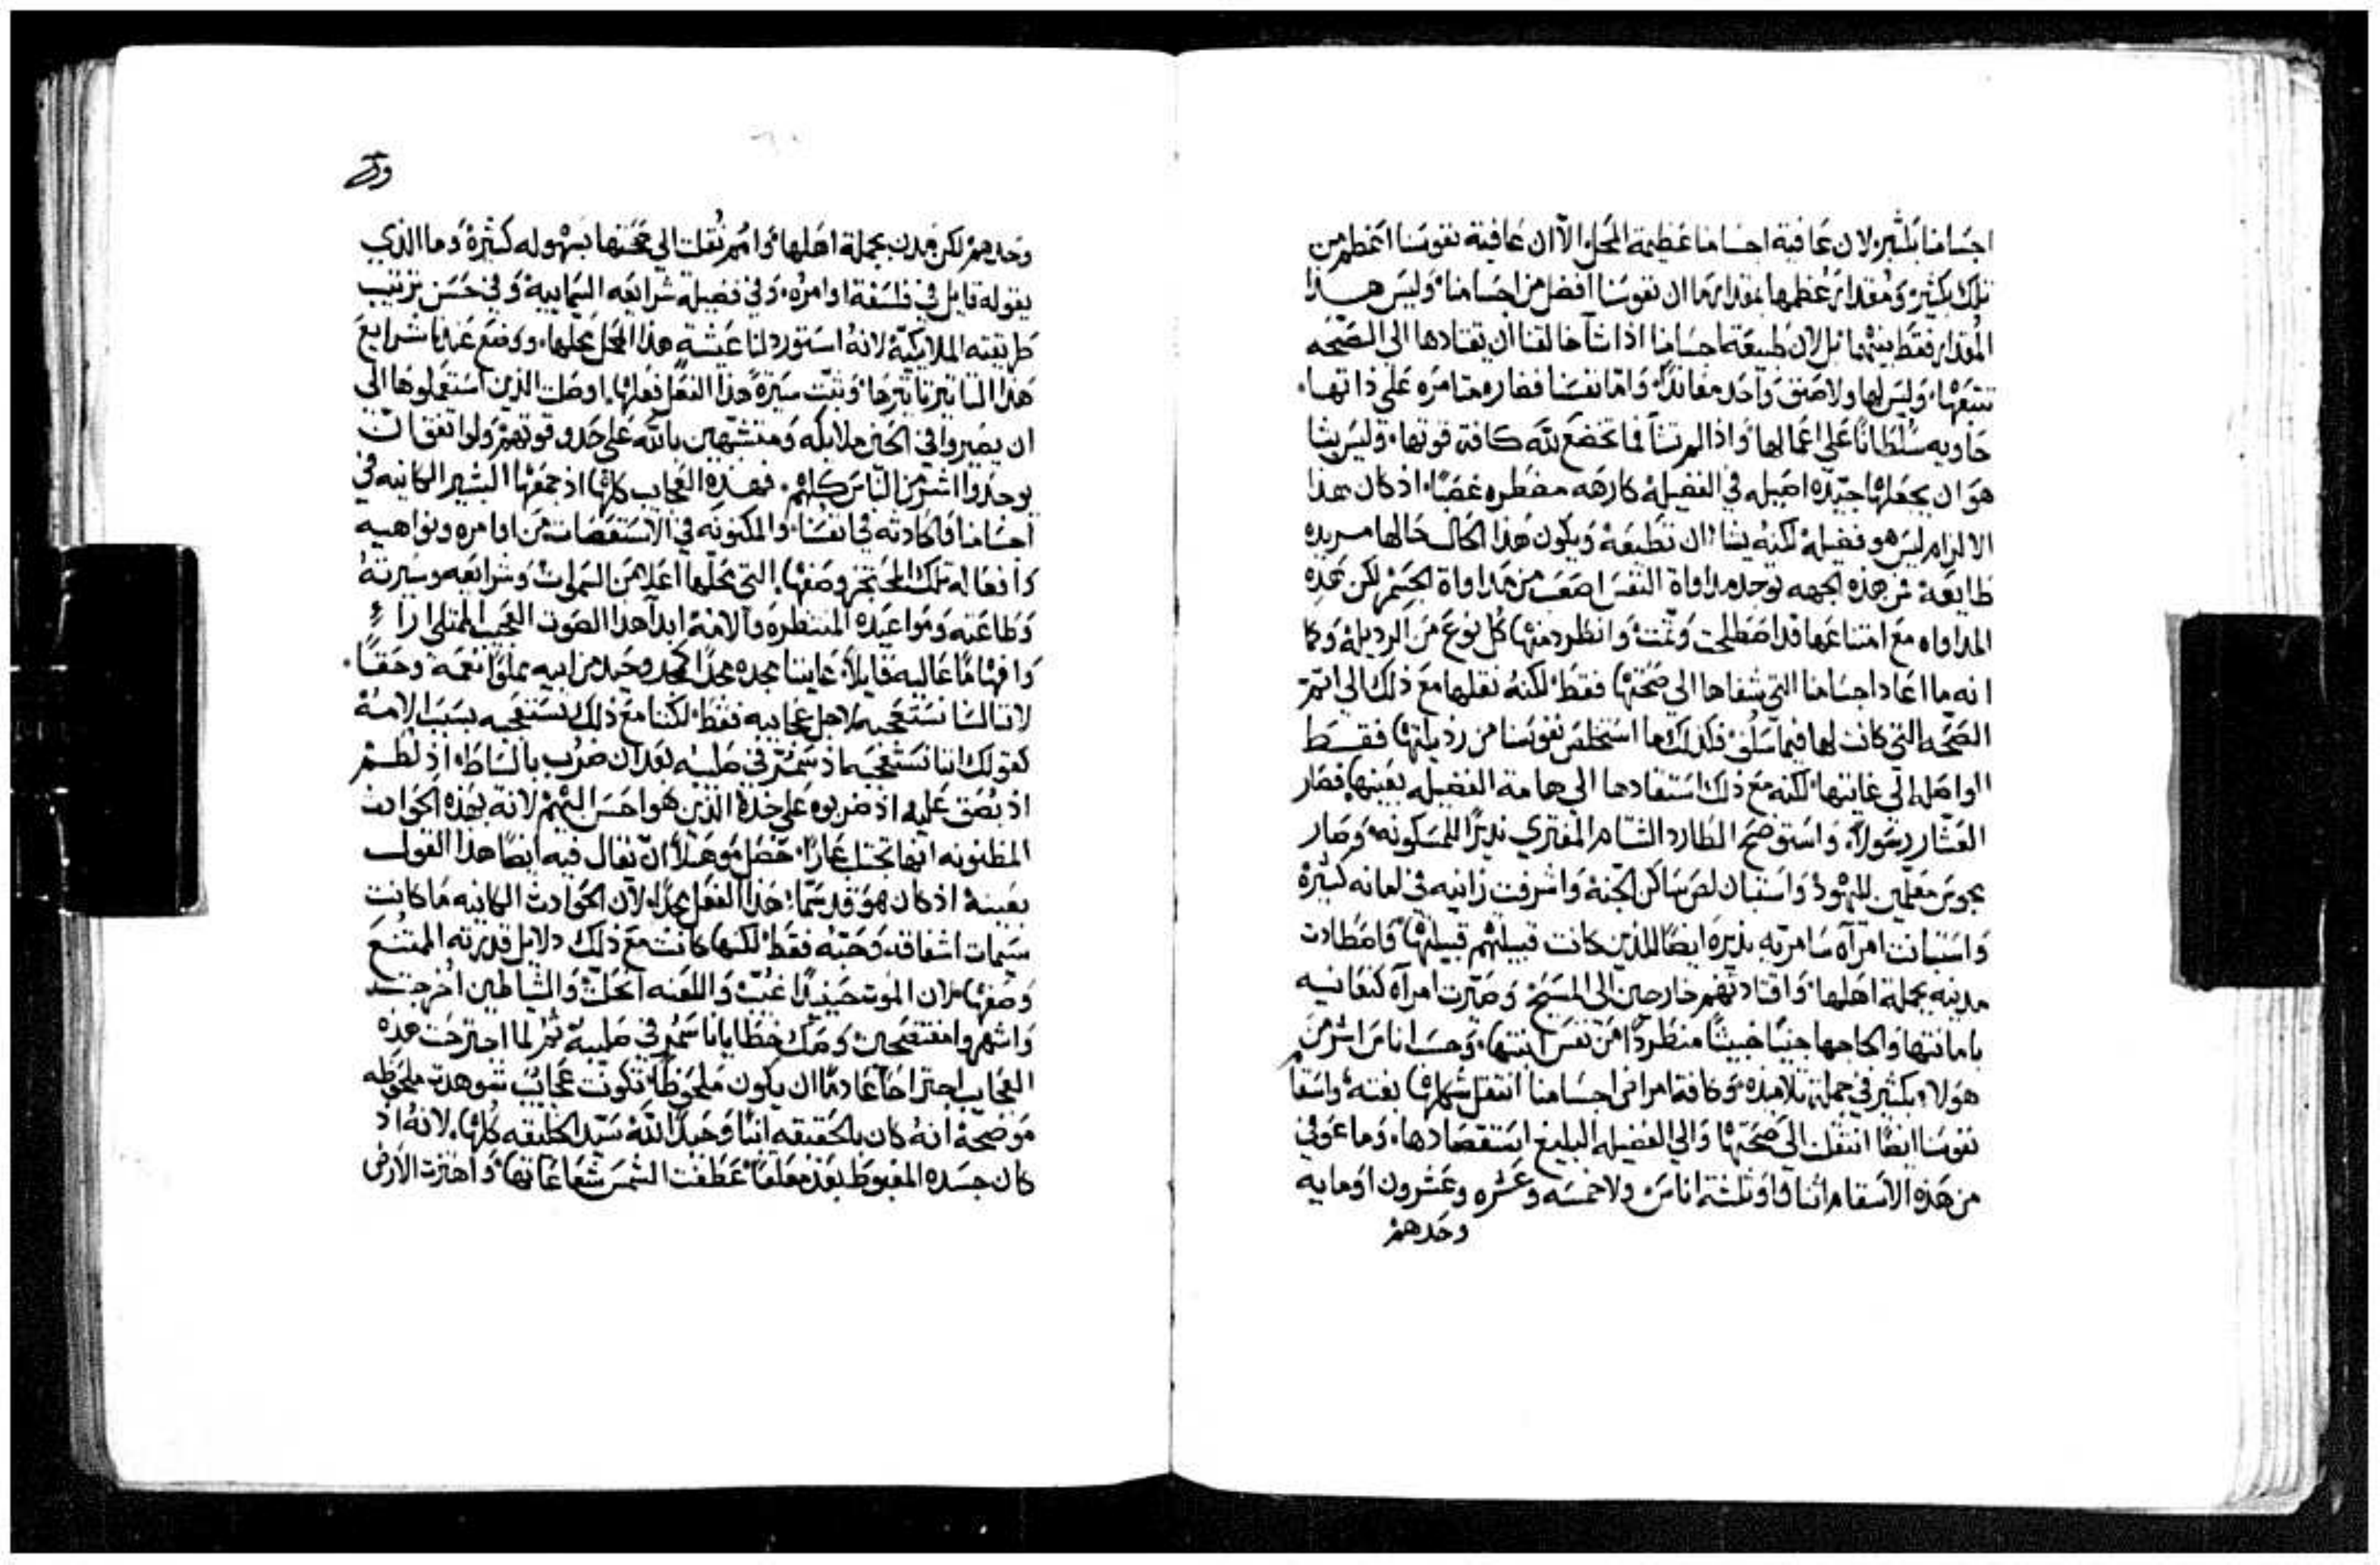 اجسامنا بكثير لان عافية اجسامنا عظيمة المحل الا ان عافية نفوسنا اعظم من
تلك بكثير ومقدار عظمها بمقدار ما ان نفوسنا افضل من اجسامنا وليس هذا
المقدار فقط بينهما بل لان طبيعة اجسامنا اذا شا خالقنا ان يقتادها الي الصحه
تتبعها وليس لها ولا صنف واحد معاند واما نفسنا فصارمتامره علي ذاتها
حاويه سلطانا علي اعمالها واذا لم تشا فما تخضع لله كافة قوتها وليس يشا
هو ان يجعلها جيده اصيله في الفضيلة كارهه مضطره غصبا اذ كان هذا
الالزام ليس هو فضيلة لكنه يشا ان تطيعه ويكون هذا الحال حالها مريده
طايعة فمن هذه الجهه توجد مداواة النفس اصعب من مداواة الجسم لكن هذه
المداواه مع امتناعها قد اصطلحت وتمت وانطرد منها كل نوع من الرديلة وكا
انه ما اعاد اجسامنا التي شفاها الي صحتها فقط لكنه نقلها مع ذلك الي اتم
الصحه التي كانت لها فيما سلف فكذلك ما استخلص نفوسنا من رذيلتها فقط
الواصله الي غايتها لكنه مع ذلك استقادها الي هامة الفضيله بعينها فصار
العشار رسولا واستوضح الطارد الشتام المفتري نذيرا للمسكونه وصار
مجوس معلمين لليهود واستبان لص ساكن الجنة واشرفت زانيه في امانه كبيرة
واستبانت امرآه سامريه نذيره ايضا للذين كانت قبيلتهم قبيلتها واصطادت
مدينه بجملة اهلها واقتادتهم خارجين الي المسيح وصيرت امرآه كنعانيه
بامانتها والحاحها جنيا خبيثا منطردا من نفس ابنتها وحسب اناس اشر من
هولاء بكثير في جملة تلاميذه وكافة امراض اجسامنا انتقل شكلها بغته واسقام
نفوسنا ايضا انتقلت الي صحتها والي الفضيله البليغ استقصادها وما عوفي
من هذه الاسقام اثنان او ثلثة اناس ولا خمسه وعشره وعشرون او مايه
وحدهم
وحدهم لكن مدن بجملة اهلها وامم نقلت الي صحتها بسهوله كثيرة وما الذي
يقوله قايل في فلسفة اوامره وفي فضيلة شرايعه السمايية وفي حسن ترتيب
طريقته الملايكية لانه استورد لنا عيشة هذا المحل محلها ووضع عندنا شرايع
هذا التاثير تاثيرها وثبت سيرة هذا الفعل فعلها اوصلت الذين استعملوها الي
ان يصيروا في الحين ملايكه ومتشبهين بالله علي حد وقوتهم ولو اتفق ان
يوجدوا اشر من الناس كلهم فهذه العجايب كلها اذ جمعها البشير الكاينه في
اجسامنا والحادثه في انفسنا والمكنونه في الاستقصات من اوامره ونواهيه
وطاعته ومواعيده المنتظره وآلامه ابدآ هذا الصوت العجيب الممتلي اراءٍ
وافهاما عاليه قايلا عاينا مجده مجدا كمجد وحيد من ابيه مملوا نعمة وحقا
لاننا لسنا نستعجبه لاجل عجايبه فقط لكننا مع ذلك نستعجبه بسبب الامه
كقولك اننا نستعجبه اذ سمر في صليبه بعد ان ضرب بالسياط اذ لطم
اذ بصق عليه اذ ضربوه علي خده الذين هو احسن اليهم لانه بهذه الحوادث
المظنونه انها تجلب عارا حصل موهلا ان يقال فيه ايضا هذا القول
بعينه اذ كان هو قد سما هذا الفعل مجدا لان الحوادث الكاينه ما كانت
سيمات اشفاقه وحبه فقط لكنها كانت مع ذلك دلايل قدرته الممتنع
وصفها لان الموت حينيذ اغلب واللعنه انحلت والشياطين اخرجت
واشهروا مفتضحين وصك خطايانا سمر في صليبه ثم لما اجترحت هذه
العجايب اجتراحا عادما ان يكون ملحوظا تكونت عجايب شوهدت ملحوظه
موضحة انه كان بالحقيقه ابنا وحيدا لله سيد الخليقه كلها لانه اذ
كان جسده المغبوط بعد معلقا عطفت الشمس شعاعاتها واهتزت الارض